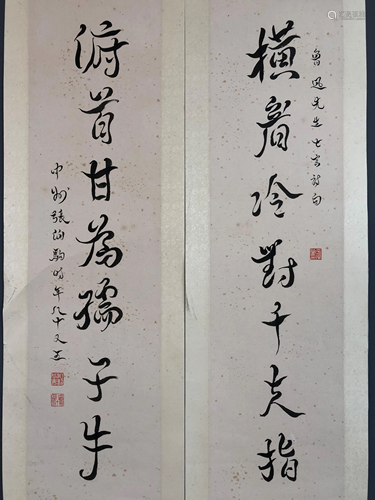 橫眉冷對千夫指
魯迅先生七言詩句
俯首甘為孺子牛
中州張伯駒時年十又五